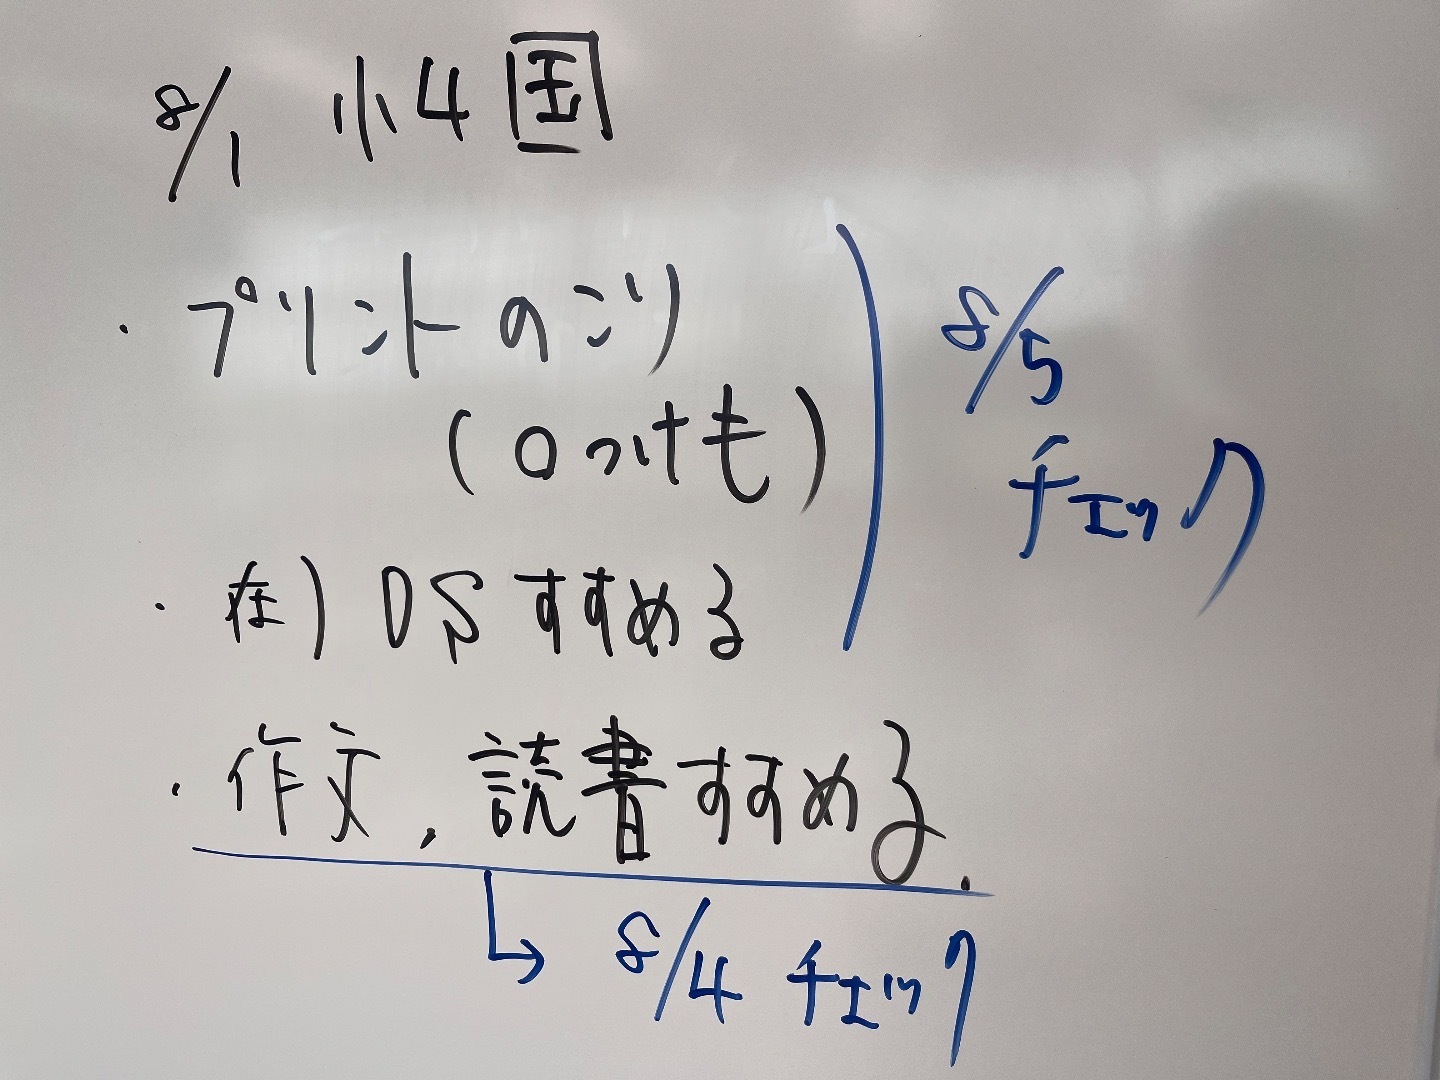 8/1 小4 国
・プリントのこり
(○つけも)
8/5
チェック
・在)DSすすめる
・作文,読書すすめる.
↳ 8/4 チェック